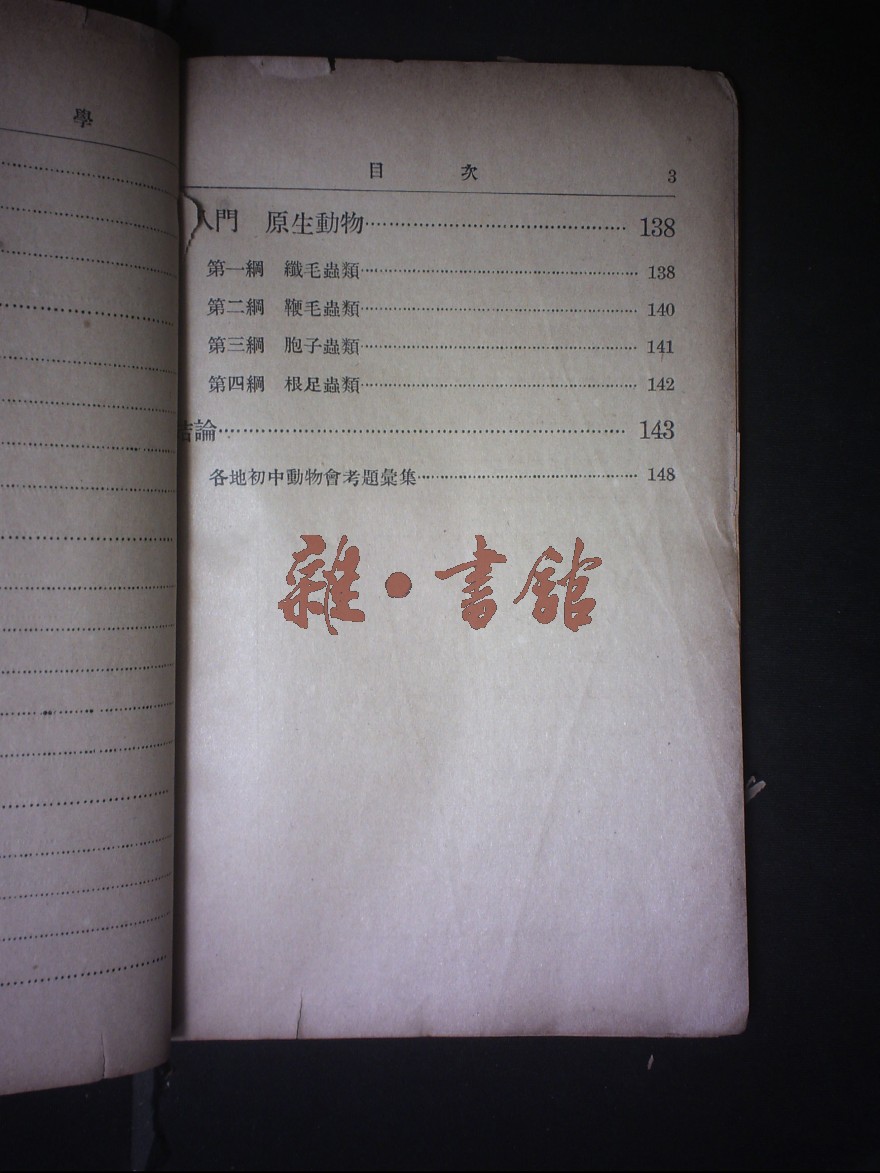 學
目次 3
門 原生動物 138
第一綱 纖毛蟲類 138
第二綱 鞭毛蟲類 140
第三綱 胞子蟲類 141
第四綱 根足蟲類 142
結論 143
各地初中動物會考題彙集 148
雜·書館